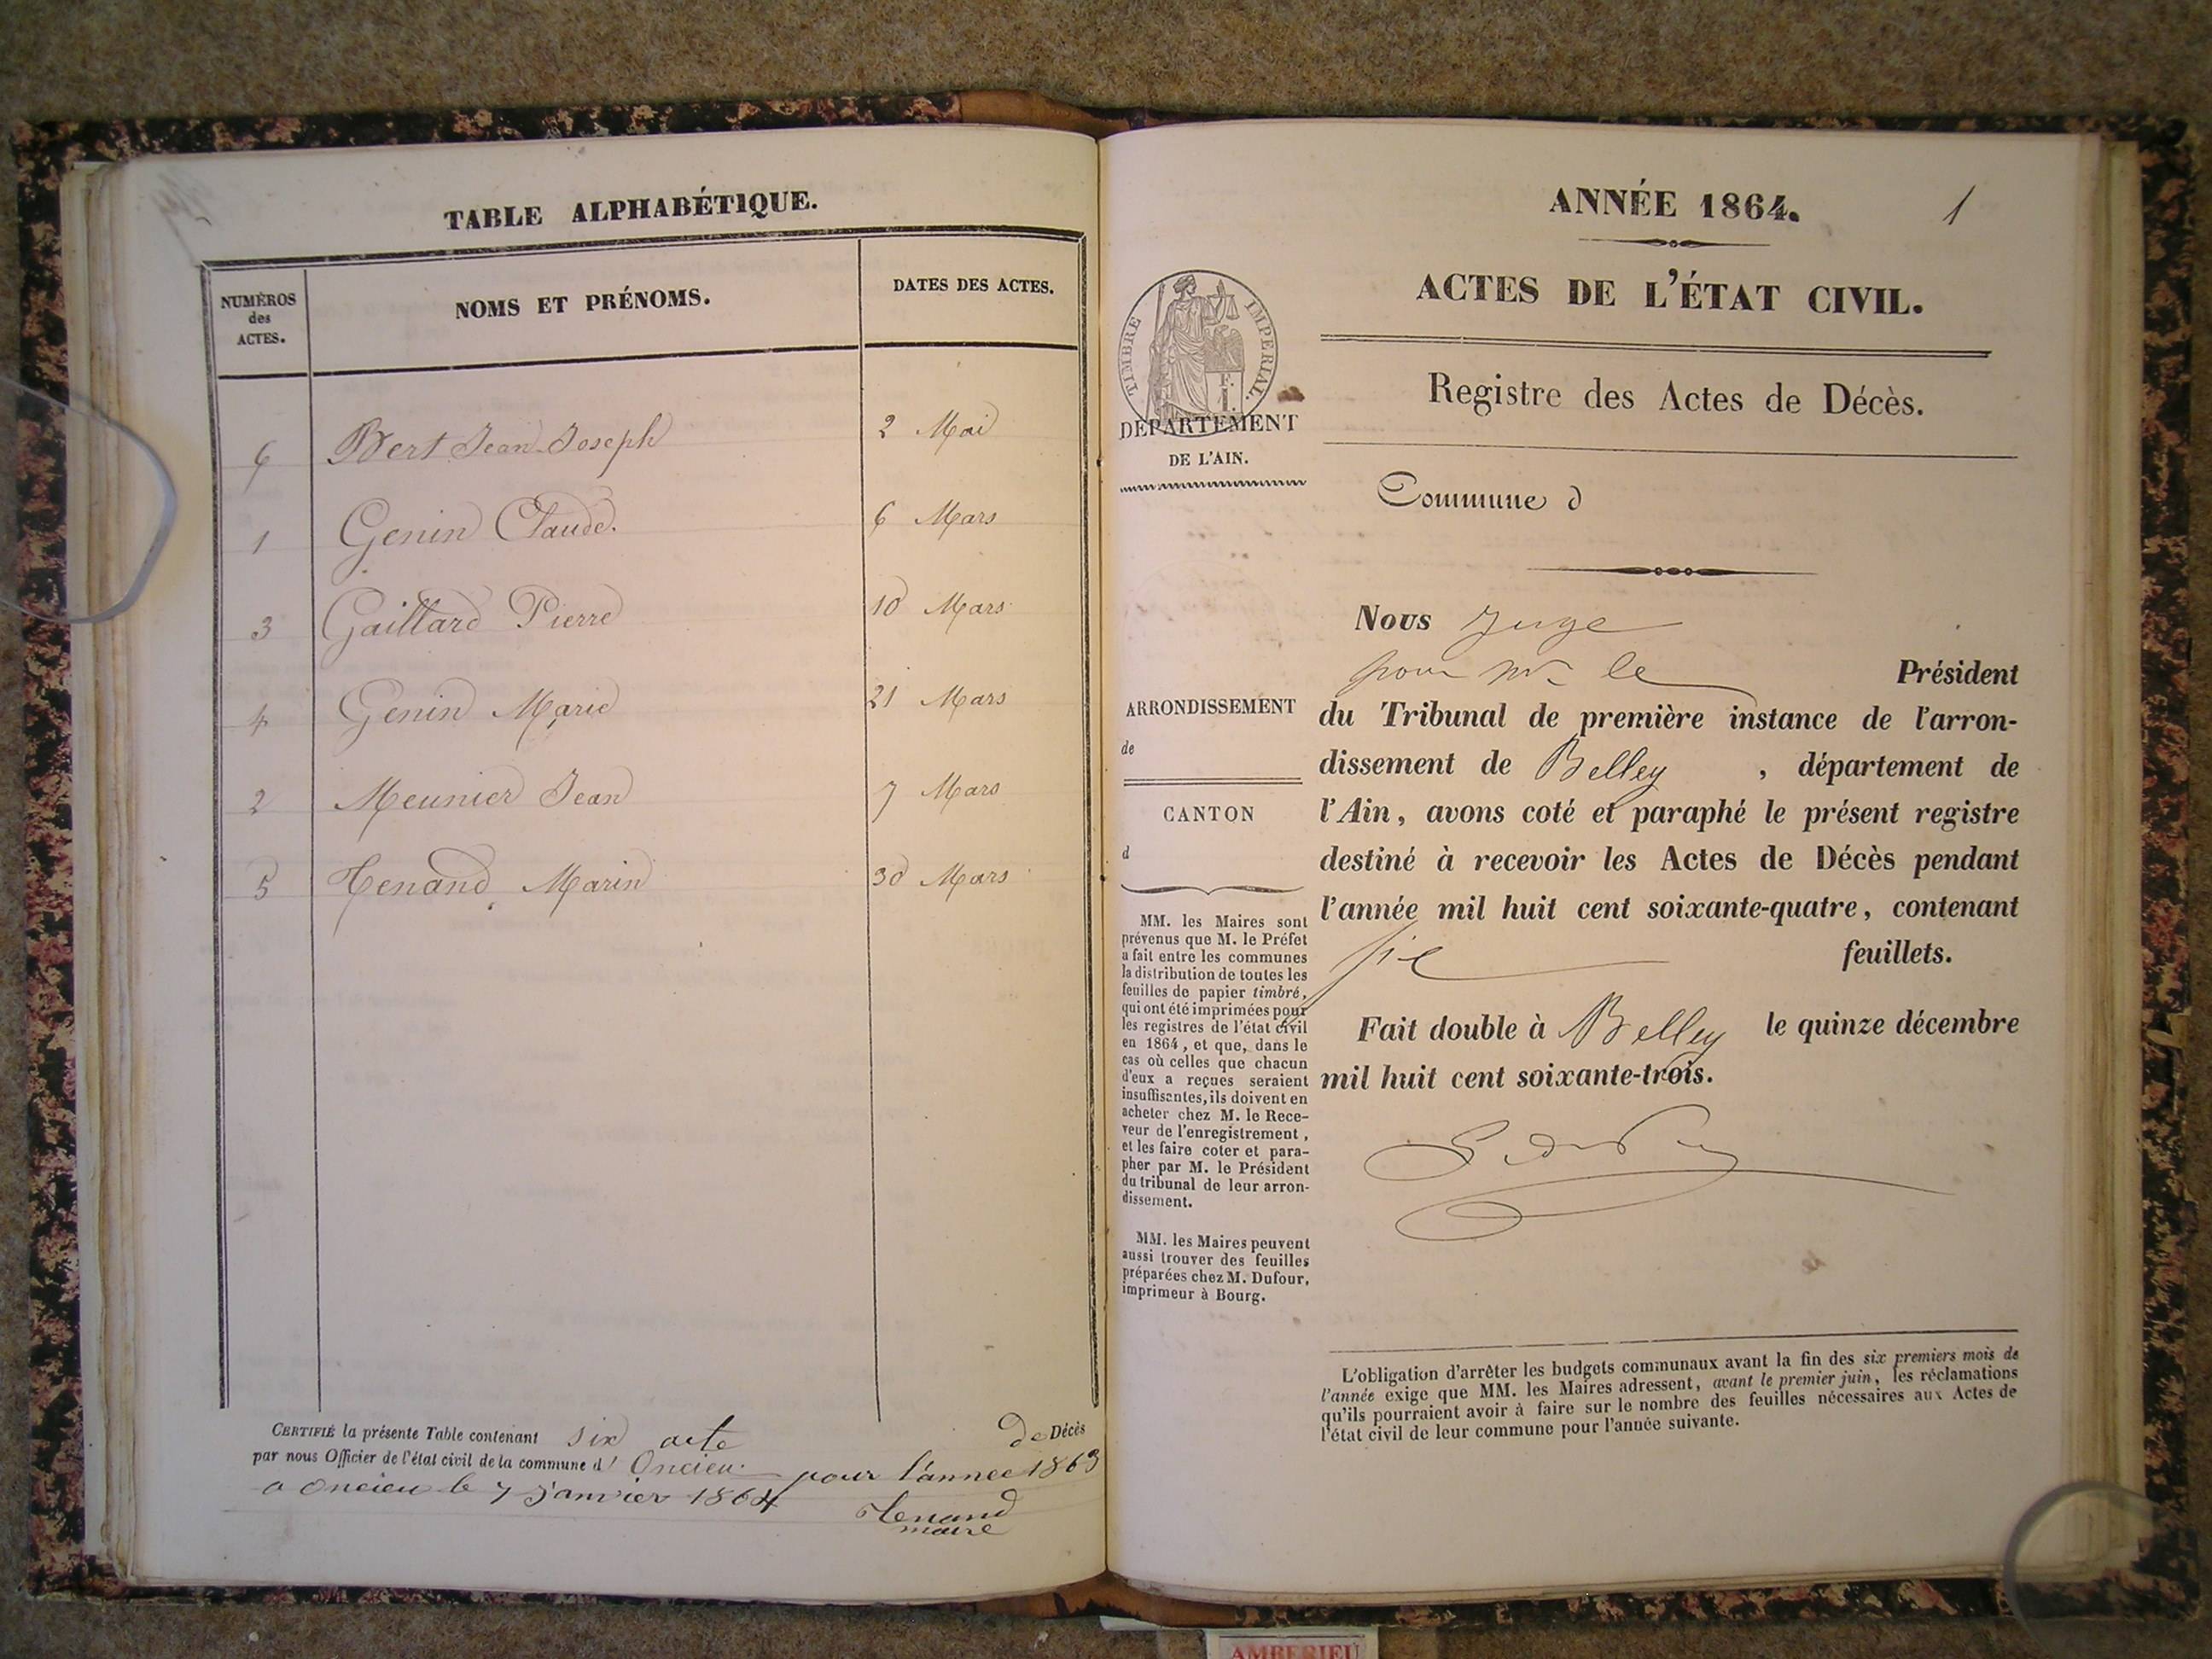 TABLE ALPHABÉTIQUE.
NUMÉROS des ACTES.
NOMS ET PRÉNOMS.
DATES DES ACTES.
6 Bert Jean-Joseph 2 Mai
1 Genin Claude. 6 Mars
3 Gaillard Pierre 10 Mars
4 Genin Marie 21 Mars
2 Meunier Jean 7 Mars
5 Tenand Marin 30 Mars
CERTIFIÉ la présente Table contenant six acte de Décès
par nous Officier de l'état civil de la commune d' Oncieu pour l'année 1863
a oncieu le 7 janvier 1864
Tenand
maire
ANNÉE 1864.
1
ACTES DE L'ÉTAT CIVIL.
TIMBRE IMPERIAL.
DÉPARTEMENT
DE L'AIN.
Registre des Actes de Décès.
Commune d
ARRONDISSEMENT
de
CANTON
d
MM. les Maires sont
prévenus que M. le Préfet
a fait entre les communes
la distribution de toutes les
feuilles de papier timbré,
qui ont été imprimées pour
les registres de l'état civil
en 1864, et que, dans le
cas où celles que chacun
d'eux a reçues seraient
insuffisantes, ils doivent en
acheter chez M. le Rece-
veur de l'enregistrement,
et les faire coter et para-
pher par M. le Président
du tribunal de leur arron-
dissement.
MM. les Maires peuvent
aussi trouver des feuilles
préparées chez M. Dufour,
imprimeur à Bourg.
Nous Juge
pour Mr le Président
du Tribunal de première instance de l'arron-
dissement de Belley, département de
l'Ain, avons coté et paraphé le présent registre
destiné à recevoir les Actes de Décès pendant
l'année mil huit cent soixante-quatre, contenant
six feuillets.
Fait double à Belley le quinze décembre
mil huit cent soixante-trois.
L'obligation d'arrêter les budgets communaux avant la fin des six premiers mois de
l'année exige que MM. les Maires adressent, avant le premier juin, les réclamations
qu'ils pourraient avoir à faire sur le nombre des feuilles nécessaires aux Actes de
l'état civil de leur commune pour l'année suivante.
AMBERIEU